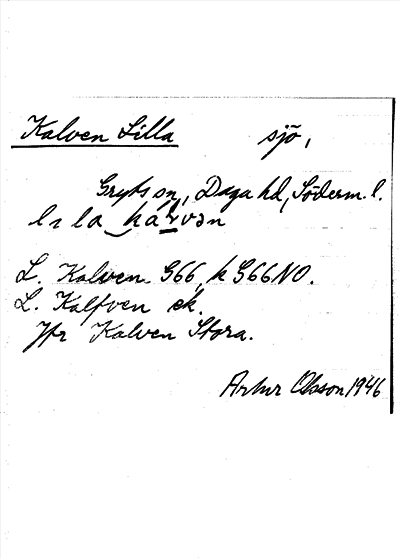 Kalven Lilla sjö,
Gryts sn, Daga hd, Söderm. l.
L. Kalven G66, k G66NO.
L. Kalfven ek.
Jfr Kalven Stora.
Artur Olsson 1946